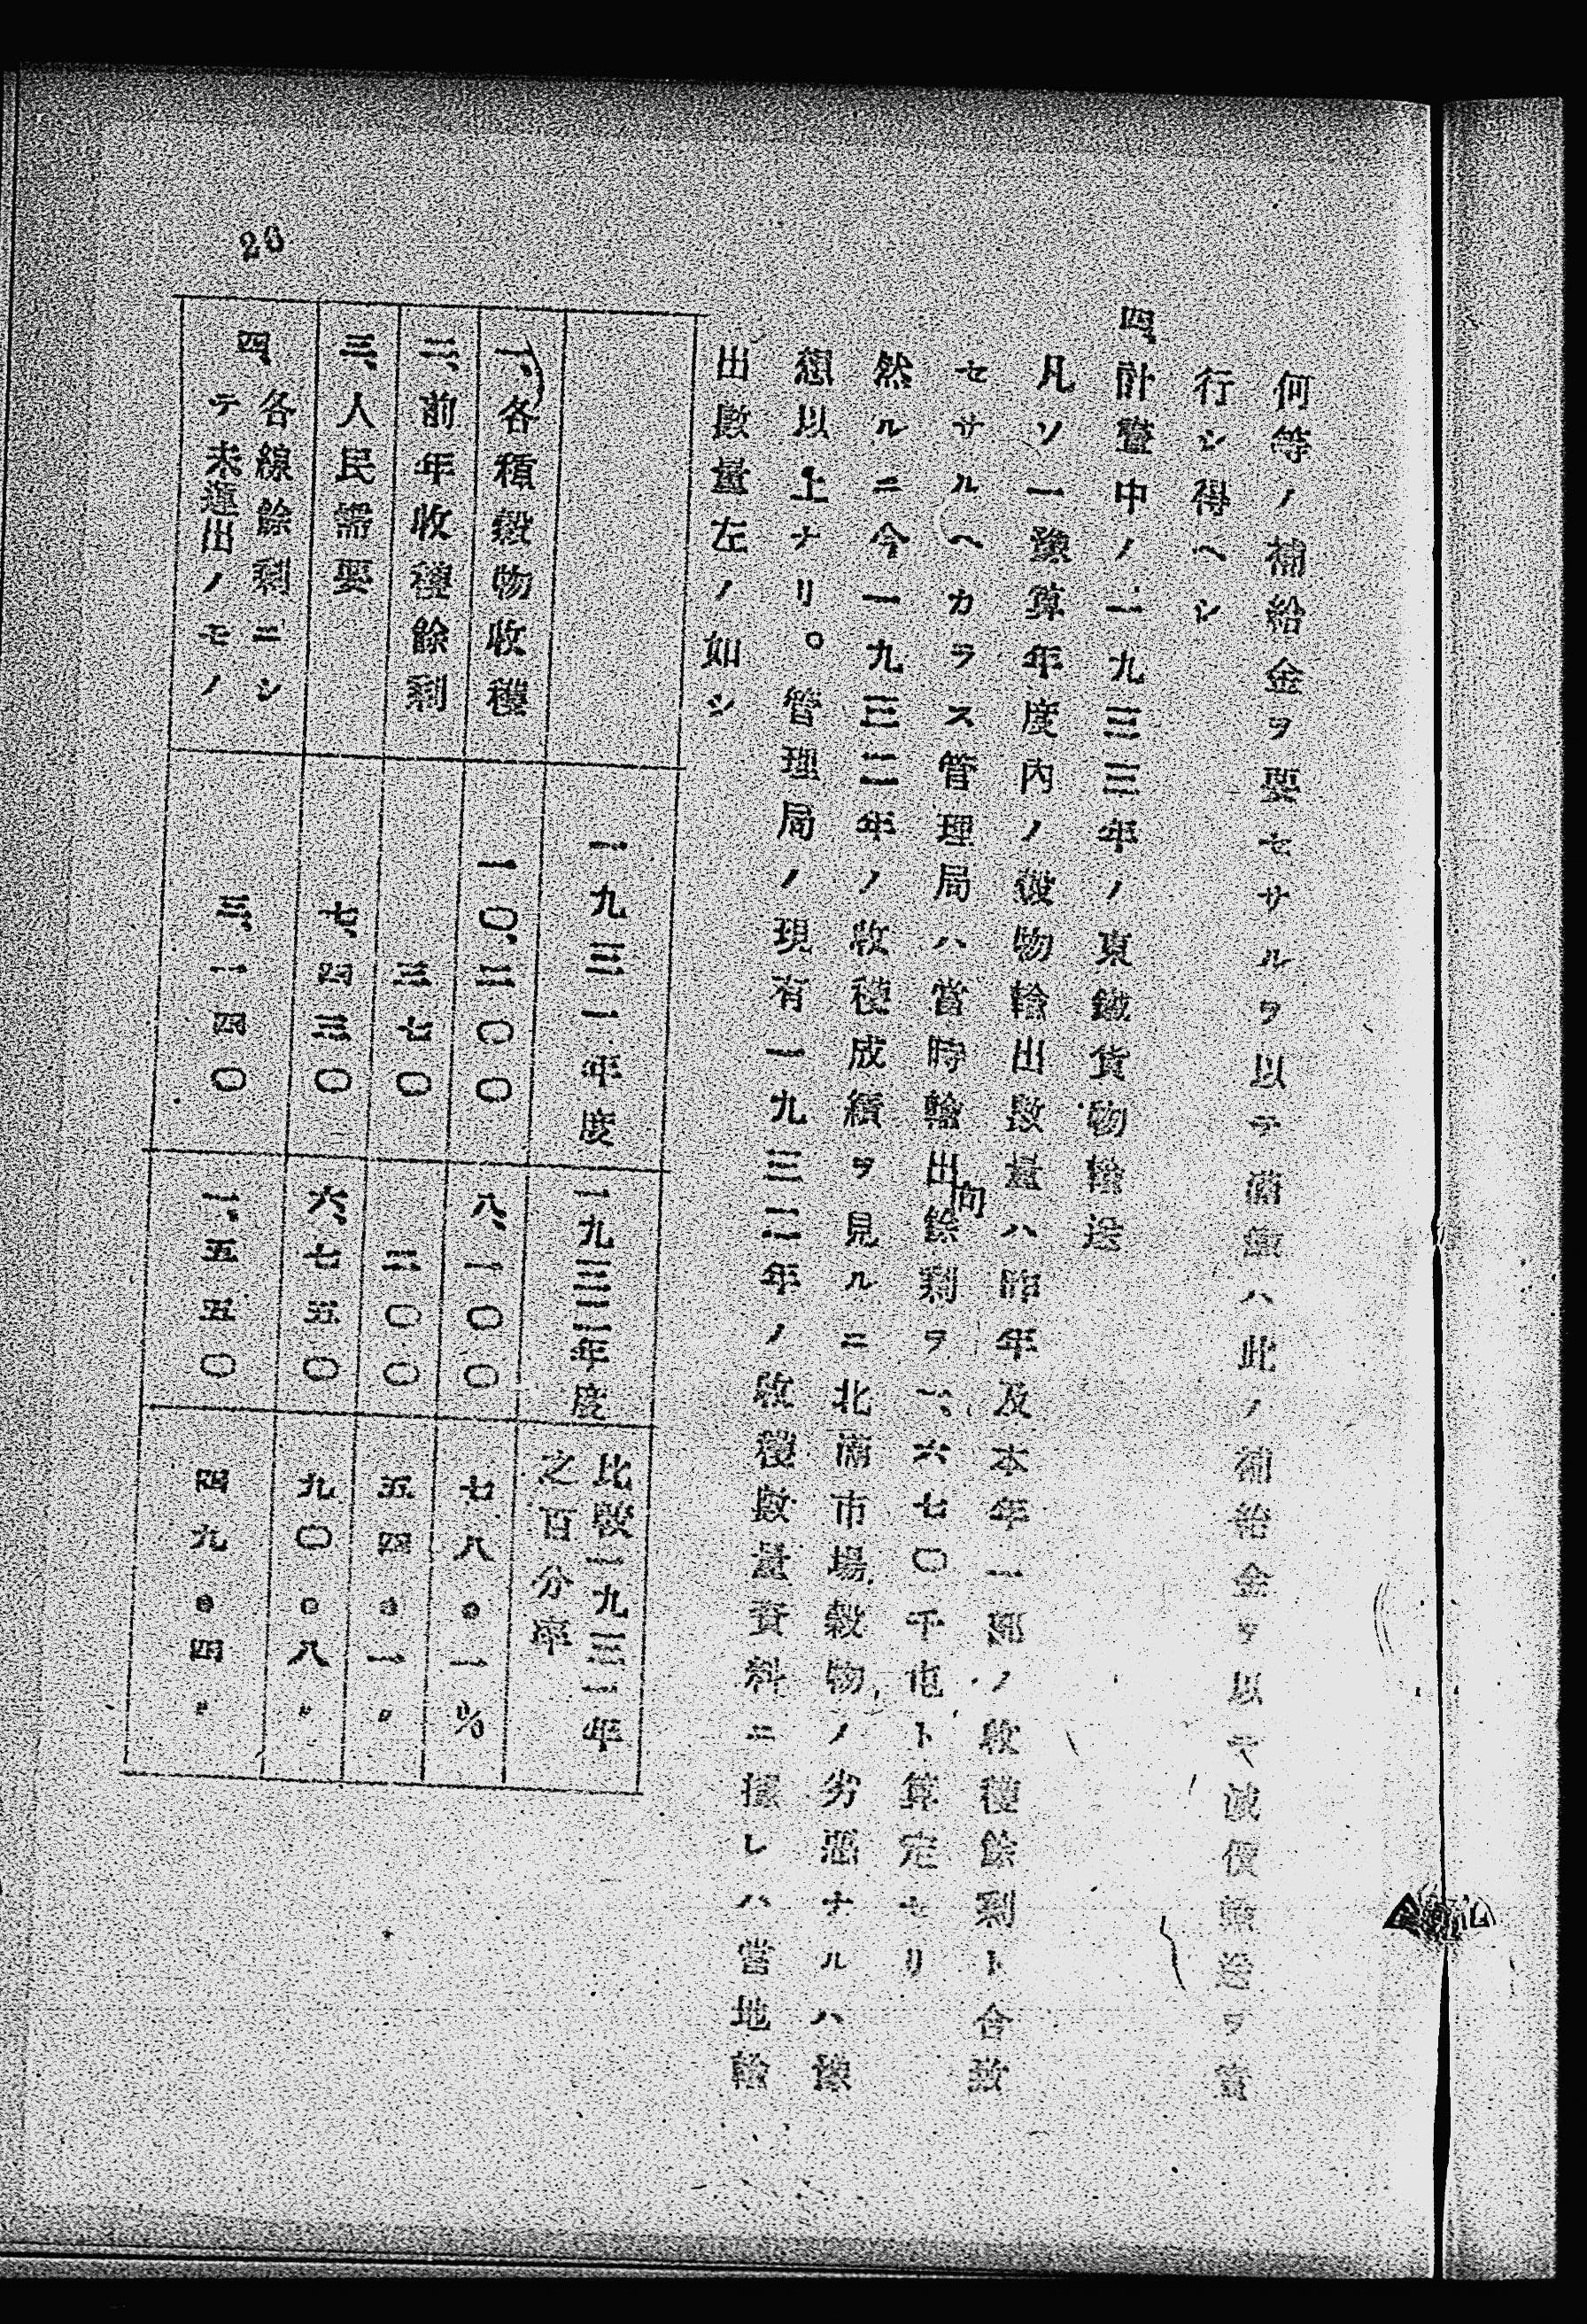 何等ノ補給金ヲ要セサルヲ以テ滿鐵ハ此ノ補給金ヲ以テ減價輸送ヲ實
行シ得ヘシ
四、計畫中ノ一九三三年ノ東鐵貨物輸送
凡ソ一豫算年度內ノ穀物輸出數量ハ昨年及本年一部ノ收穫餘剩ト合致
セサルヘカラス管理局ハ當時輸出向餘剩ヲ一、六七〇千屯ト算定セリ
然ルニ今一九三二年ノ收穫成績ヲ見ルニ北滿市場穀物ノ劣惡ナルハ豫
想以上ナリ。管理局ノ現有一九三二年ノ收穫數量資料ニ據レハ當地輸
出數量左ノ如シ
一九三一年度
一九三二年度
比較一九三一年
之百分率
一、各種穀物收穫
一〇、三〇〇
八、一〇〇
七八。一%
二、前年收穫餘剩
三七〇
二〇〇
五四。一〃
三、人民需要
七、四三〇
六、七五〇
九〇。八〃
四、各線餘剩ニシ
テ未運出ノモノ
三、一四〇
一、五五〇
四九。四〃
26